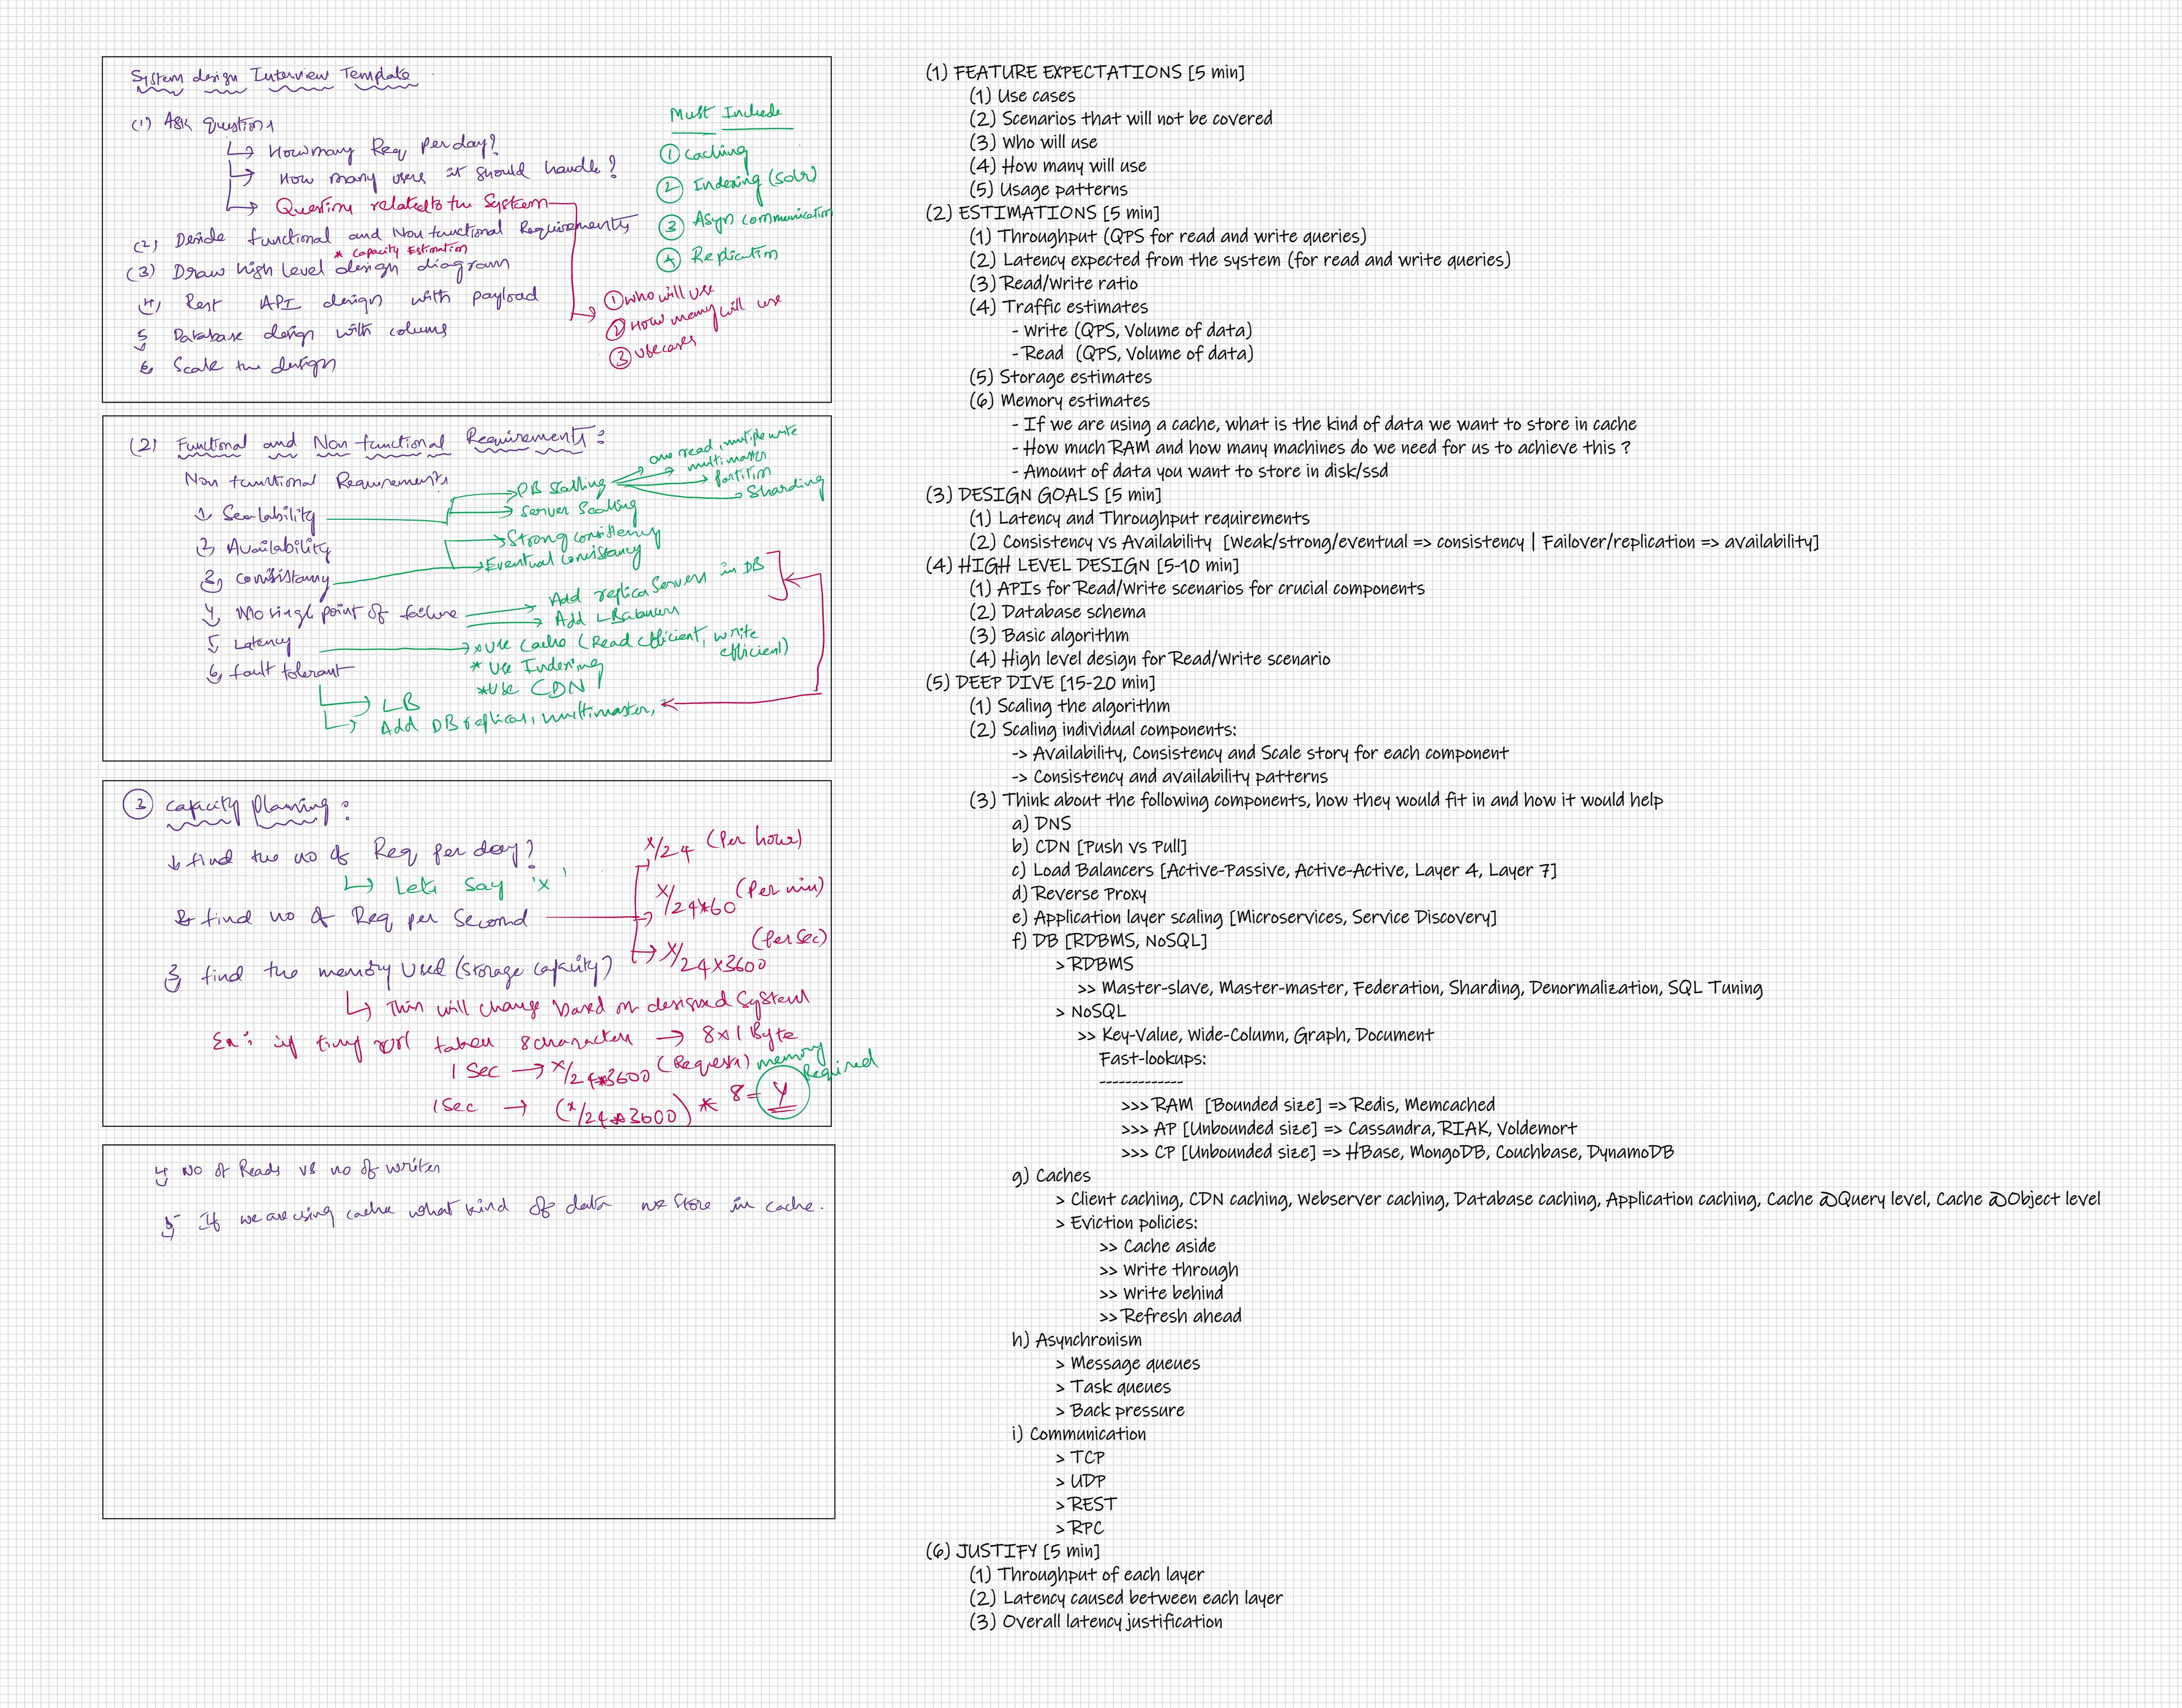 System design Interview Template
(1) Ask Questions
How many Req per day?
How many users it should handle?
Questions related to the System
(2) Decide functional and Non functional Requirements
* Capacity Estimation
(3) Draw high level design diagram
4) Rest API design with payload
5) Database design with colums
6) Scale the design
Must Include
① Caching
② Indexing (Solr)
③ Asyn communication
④ Replication
① who will use
② How many will use
③ use cases
(2) Functional and Non functional Requirements:
Non functional Requirements
1) Scalability
DB Scalling
one read, multiple write
multi master
partition
Sharding
Server Scalling
2) Availability
3) Consistancy
Strong consistency
Eventual consistancy
4) No single point of failure
Add replica Servers in DB
Add LBalancers
5) Latency
* Use Cache (Read efficient, write efficient)
* Use Indexing
* Use CDN
6) fault tolerant
LB
Add DB replicas, multimaster,
③ Capacity Planning:
1) find the no of Req per day?
Lets say 'x'
2) find no of Req per Second
x/24 (Per hour)
x/24*60 (Per min)
x/24x3600 (Per Sec)
3) find the memory Used (Storage capacity)
This will change based on designed System
Ex: if tiny url takes 8 characters → 8x1 Byte
1 Sec → x/24*3600 (Requests)
1 Sec → (x/24*3600) * 8 = Y
memory Required
4) No of Reads vs no of writes
5) If we are using cache what kind of data we store in cache.
(1) FEATURE EXPECTATIONS [5 min]
(1) Use cases
(2) Scenarios that will not be covered
(3) Who will use
(4) How many will use
(5) Usage patterns
(2) ESTIMATIONS [5 min]
(1) Throughput (QPS for read and write queries)
(2) Latency expected from the system (for read and write queries)
(3) Read/Write ratio
(4) Traffic estimates
- Write (QPS, Volume of data)
- Read (QPS, Volume of data)
(5) Storage estimates
(6) Memory estimates
- If we are using a cache, what is the kind of data we want to store in cache
- How much RAM and how many machines do we need for us to achieve this ?
- Amount of data you want to store in disk/ssd
(3) DESIGN GOALS [5 min]
(1) Latency and Throughput requirements
(2) Consistency vs Availability [Weak/strong/eventual => consistency | Failover/replication => availability]
(4) HIGH LEVEL DESIGN [5-10 min]
(1) APIs for Read/Write scenarios for crucial components
(2) Database schema
(3) Basic algorithm
(4) High level design for Read/Write scenario
(5) DEEP DIVE [15-20 min]
(1) Scaling the algorithm
(2) Scaling individual components:
-> Availability, Consistency and Scale story for each component
-> Consistency and availability patterns
(3) Think about the following components, how they would fit in and how it would help
a) DNS
b) CDN [Push vs Pull]
c) Load Balancers [Active-Passive, Active-Active, Layer 4, Layer 7]
d) Reverse Proxy
e) Application layer scaling [Microservices, Service Discovery]
f) DB [RDBMS, NoSQL]
> RDBMS
>> Master-slave, Master-master, Federation, Sharding, Denormalization, SQL Tuning
> NoSQL
>> Key-Value, Wide-Column, Graph, Document
Fast-lookups:
-------------
>>> RAM [Bounded size] => Redis, Memcached
>>> AP [Unbounded size] => Cassandra, RIAK, Voldemort
>>> CP [Unbounded size] => HBase, MongoDB, Couchbase, DynamoDB
g) Caches
> Client caching, CDN caching, Webserver caching, Database caching, Application caching, Cache @Query level, Cache @Object level
> Eviction policies:
>> Cache aside
>> Write through
>> Write behind
>> Refresh ahead
h) Asynchronism
> Message queues
> Task queues
> Back pressure
i) Communication
> TCP
> UDP
> REST
> RPC
(6) JUSTIFY [5 min]
(1) Throughput of each layer
(2) Latency caused between each layer
(3) Overall latency justification